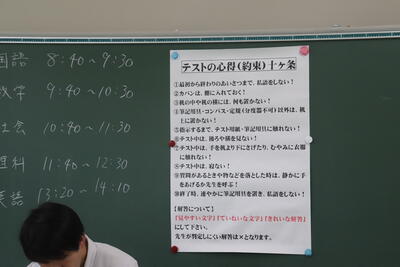 国語 8:40〜9:30
数学 9:40〜10:30
社会 10:40〜11:30
理科 11:40〜12:30
英語 13:20〜14:10
テストの心得(約束)十ヶ条
①最初から終わりのあいさつまで、私語をしない!
②カバンは、棚に入れておく!
③机の中や机の横には、何も置かない!
④筆記用具・コンパス・定規(分度器不可)以外は、机
上に置かない!
⑤指示するまで、テスト用紙・筆記用具に触れない!
⑥テスト中は、後ろや横を見ない!
⑦テスト中は、手を机より下にさげたり、むやみに衣服
に触れない!
⑧テスト中は、寝ない!
⑨質問があるときや物などを落とした時は、静かに手
をあげるか先生を呼ぶ!
⑩終了時、速やかに筆記用具を置き、私語をしない!
【解答について】
『見やすい文字』『ていねいな文字』『きれいな解答』
にして下さい。
先生が判定しにくい解答は×となります。